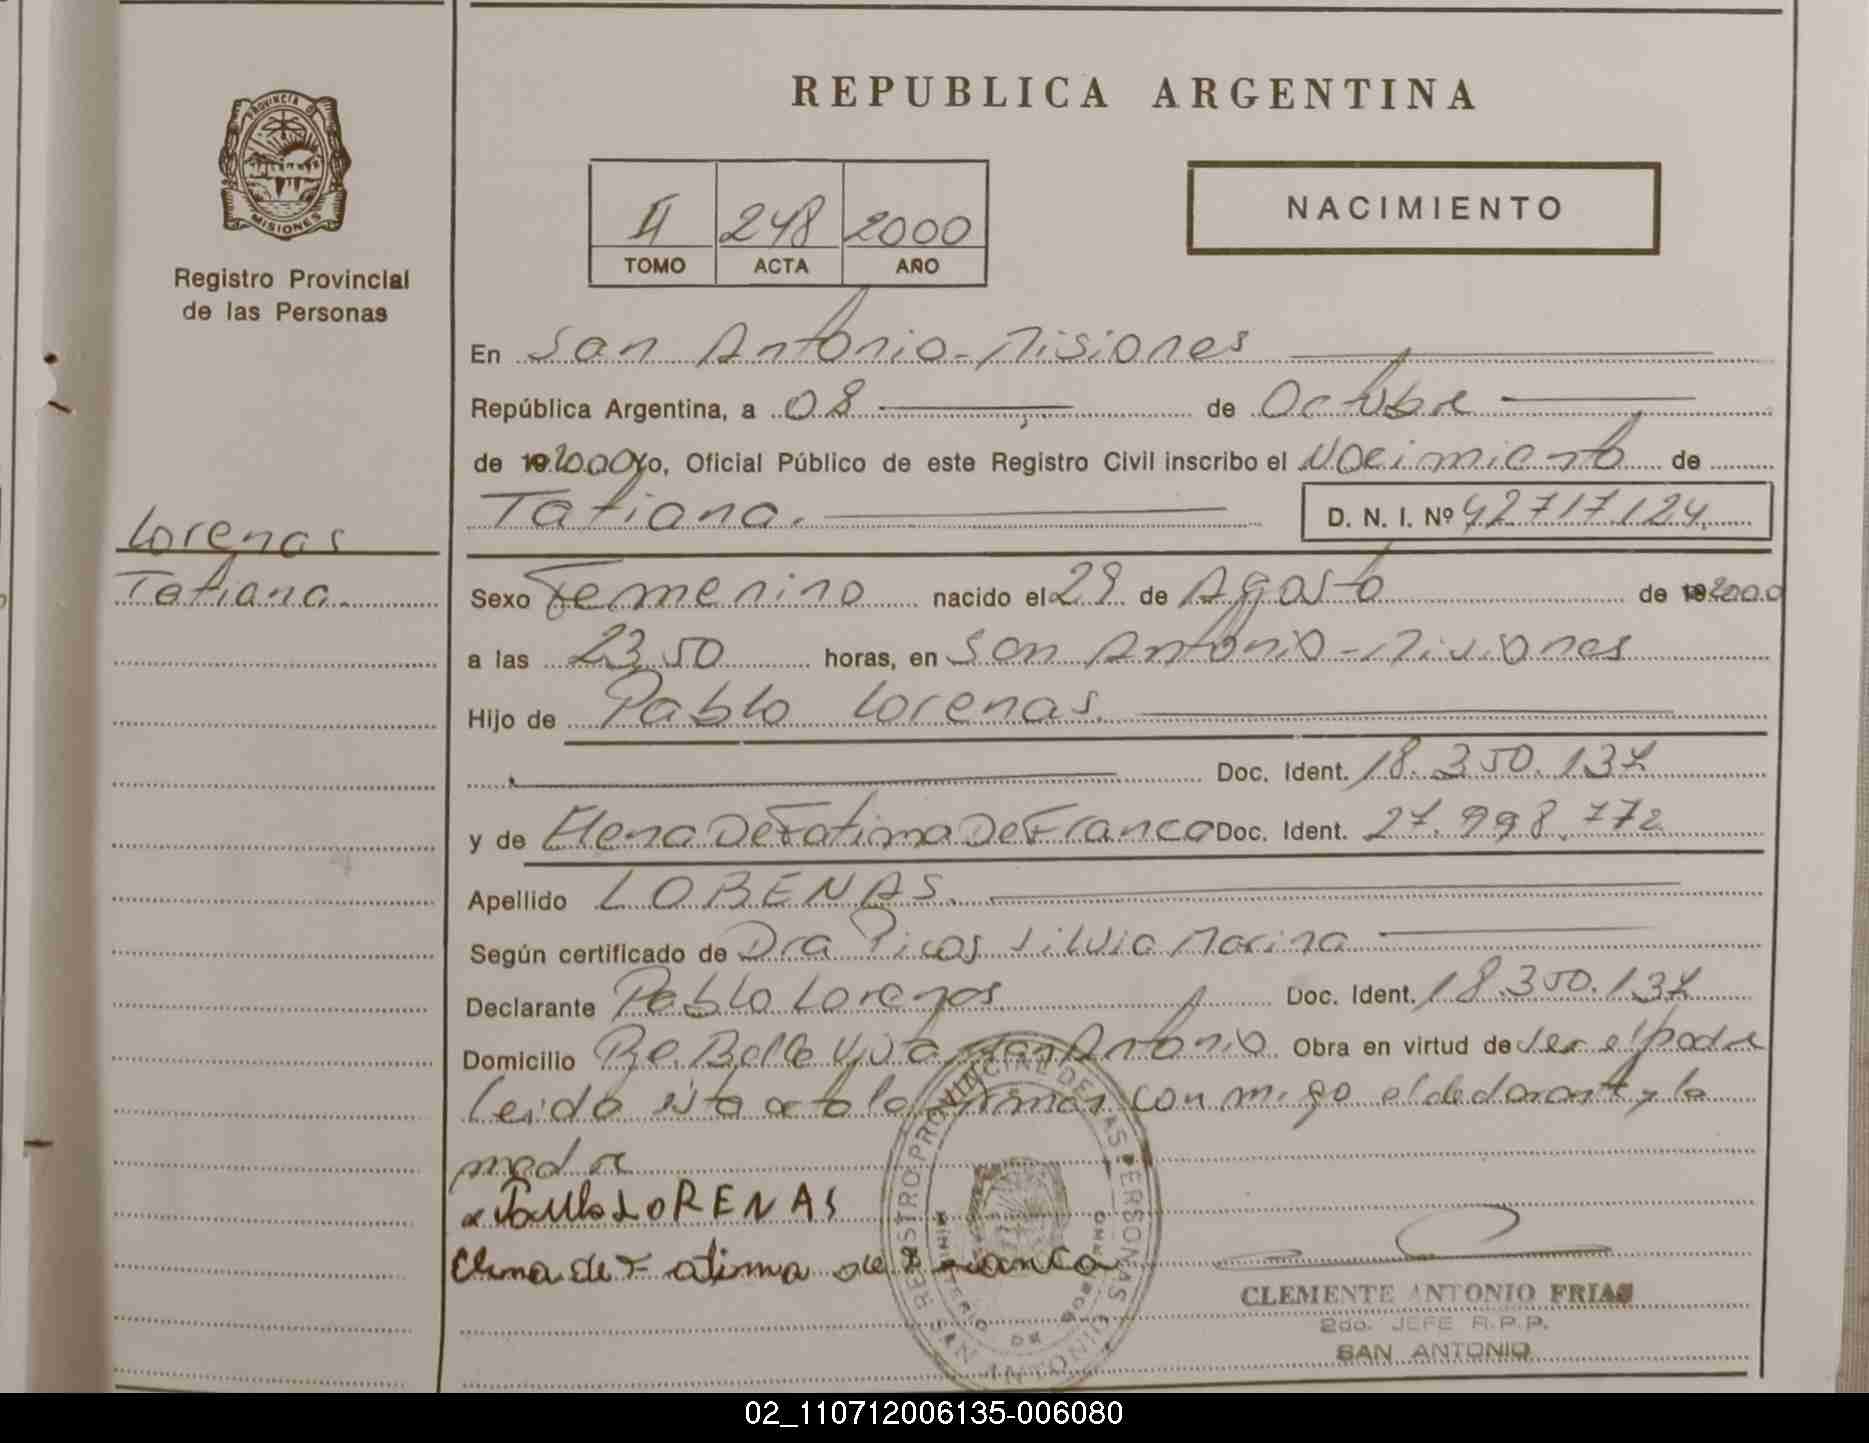 REPUBLICA ARGENTINA
PROVINCIA D
MISIONES
Registro Provincial
de las Personas
II 248 2000
TOMO ACTA AÑO
NACIMIENTO
En San Antonio - Misiones
República Argentina, a 08 de Octubre
de 19 2000 Yo, Oficial Público de este Registro Civil inscribo el Nacimiento de
Tatiana. D. N. I. Nº 42717124
Lorenas
Tatiana.
Sexo Femenino nacido el 29 de Agosto de 19 2000
a las 23,50 horas, en San Antonio - Misiones
Hijo de Pablo Lorenas.
Doc. Ident. 18.350.137
y de Elena De Fatima De Franca Doc. Ident. 27.998.772
Apellido LORENAS.
Según certificado de Dra Picos Silvia Marina
Declarante Pablo Lorenas Doc. Ident. 18.350.137
Domicilio Bº. Bella Vista San Antonio Obra en virtud de ser el padre
Leido esta acta la firman conmigo el declarante y la
madre
Pablo LORENAS
Elena de Fatima de Franca
REGISTRO PROVINCIAL DE LAS PERSONAS
MINISTERIO DE GOBIERNO
SAN ANTONIO
CLEMENTE ANTONIO FRIAS
2do. JEFE R.P.P.
SAN ANTONIO
02_110712006135-006080